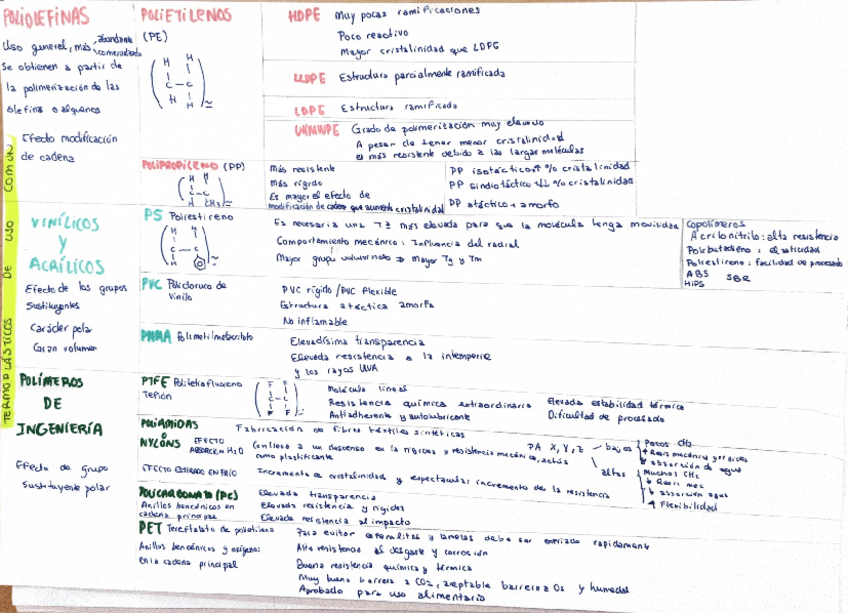 POLIOLEFINAS
Uso general, más abundante
comercializado
Se obtienen a partir de
la polimerización de las
olefinas o alquenos
Efecto modificación
de cadena
TERMOPLÁSTICOS DE USO COMÚN
POLIETILENOS
(PE)
HDPE Muy pocas ramificaciones
Poco reactivo
Mayor cristalinidad que LDPE
LLDPE Estructura parcialmente ramificada
LDPE Estructura ramificada
UHMWPE Grado de polimerización muy elevado
A pesar de tener menor cristalinidad
es más resistente debido a las largas moléculas
POLIPROPILENO (PP)
Más resistente
Más rígido
Es mayor el efecto de
modificación de cadena que aumenta cristalinidad
PP isotáctico % cristalinidad
PP sindiotáctico % cristalinidad
PP atáctico amorfo
VINÍLICOS
Y
ACRÍLICOS
Efecto de los grupos
sustituyentes
Carácter polar
Gran volumen
PS Poliestireno
Es necesaria una Tª más elevada para que la molécula tenga movilidad
Comportamiento mecánico: Influencia del radial
Mayor grupo voluminoso => mayor Tg y Tm
Copolímeros
Acrilonitrilo: alta resistencia
Polibutadieno: elasticidad
Poliestireno: facilidad de procesado
ABS SBR
HIPS
PVC Policloruro de
Vinilo
PVC rígido / PVC flexible
Estructura atáctica amorfa
No inflamable
PMMA Polimetilmetacrilato
Elevadísima transparencia
Elevada resistencia a la intemperie
y los rayos UVA
POLÍMEROS
DE
INGENIERÍA
Efecto de grupo
sustituyente polar
PTFE
Teflón
Molécula lineal
Resistencia química extraordinaria
Antiadherente y autolubricante
Elevada estabilidad térmica
Dificultad de procesado
POLIAMIDAS
NYLONS
Fabricación de fibras textiles sintéticas
EFECTO
ABSORCIÓN H2O
Conlleva a un descenso en la rigidez y resistencia mecánica, actúa
como plastificante
PA X, Y, Z
bajos
Pocos CH2
Resis mecánica y rigidez
absorción de agua
altos
Muchos CH2
Resis mec
absorción agua
Flexibilidad
EFECTO ESTIRADO EN FRÍO
Incremento de cristalinidad y espectacular incremento de la resistencia
POLICARBONATO (PC)
Anillos bencénicos en
cadena principal
Elevada transparencia
Elevada resistencia y rigidez
Elevada resistencia al impacto
PET Tereftalato de polietileno
Anillos bencénicos y oxígenos
en la cadena principal
Para evitar esferulitas y lamelas debe ser enfriado rapidamente
Alta resistencia al desgaste y corrosión
Buena resistencia química y térmica
Muy buena barrera a CO2, aceptable barrera a O2 y humedad
Aprobado para uso alimentario